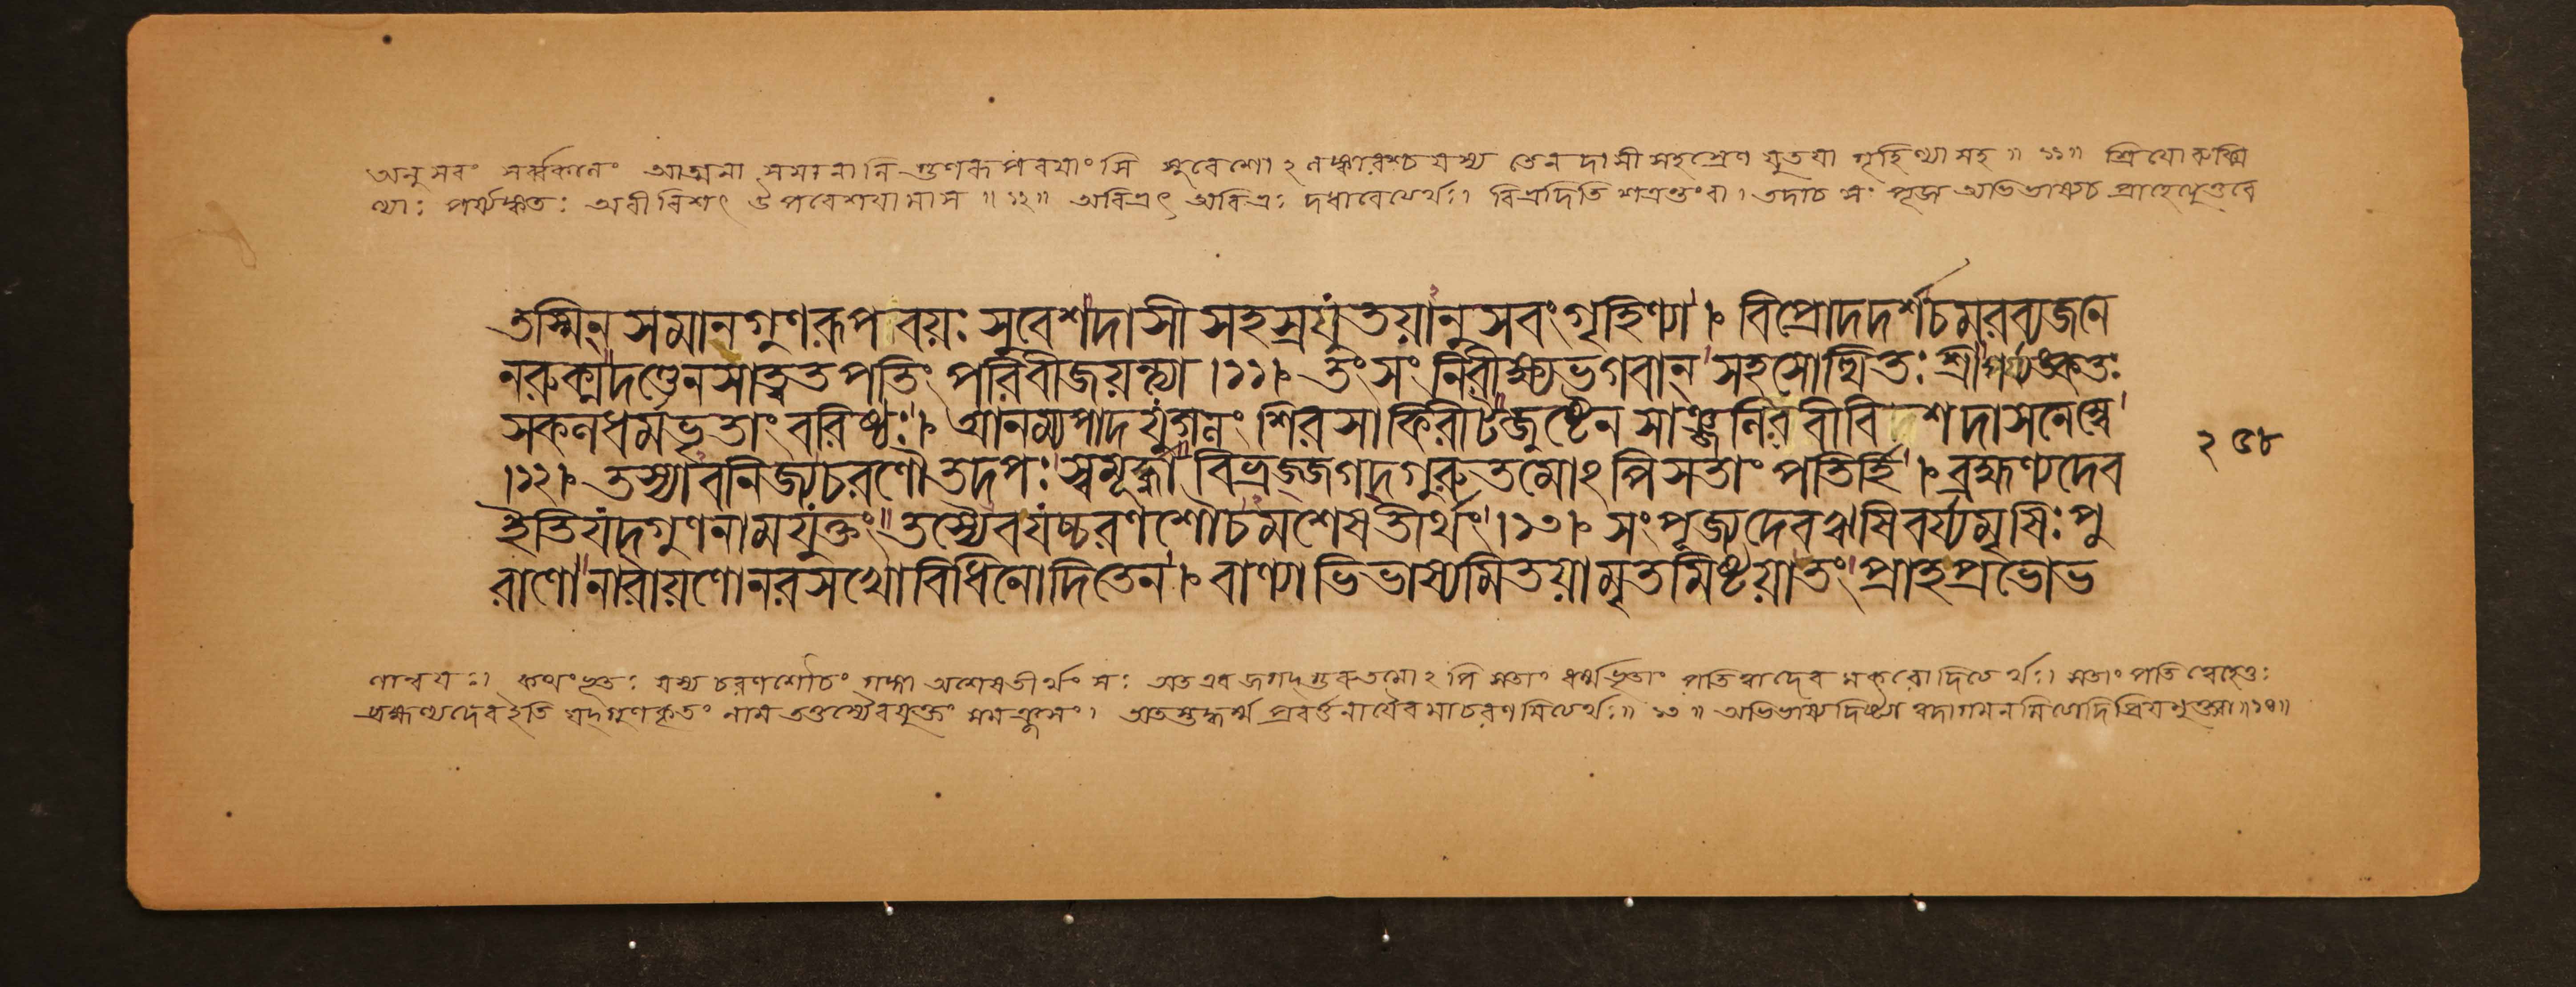 অনুসবং সর্ব্বকালং আত্মনা সমানানি গুণরূপবয়াংসি সুবেশোঽলঙ্কারশ্চ যস্য তেন দাসীসহস্রেণ যুতয়া গৃহিণ্যা সহ॥ ১১॥ শ্রিয়ো রুক্মি
ণ্যাঃ পর্য্যঙ্কতঃ অবীবিশৎ উপবেশয়ামাস॥ ১২॥ অবিভ্রৎ অবিভ্রঃ দধাবেত্যর্থঃ। বিভ্রদিতি শত্রন্তং বা। তদাচ সং পূজ্য অভিভাষ্যচ প্রাহেত্যুত্তরে
তস্মিন্ সমানগুণরূপবয়ঃ সুবেশদাসীসহস্রযুতয়ানুসবং গৃহিণ্যা । বিপ্রোদদর্শচমরব্যজনে
নরুক্মদণ্ডেনসাত্বতপতিং পরিবীজয়ন্ত্যা ।১১। তং সং নিরীক্ষ্যভগবান্ সহসোত্থিতঃ শ্রীপর্য্যঙ্কতঃ
সকলধর্মভৃতাং বরিষ্ঠঃ । আনম্যপাদযুগলং শিরসাকিরীটজুষ্টেনসাঞ্জলিরবীবিশদাসনেস্বে
।১২। তস্যাবনিজ্যচরণৌতদপঃ স্বমূর্দ্ধ্না বিভ্রজ্জগদ্গুরুতমোঽপিসতাং পতির্হি । ব্রহ্মণ্যদেব
ইতিযদ্গুণনামযুক্তং তস্যৈবযচ্চরণশৌচমশেষতীর্থং ।১৩। সংপূজ্যদেবঋষিবর্য্যমৃষিঃ পু
রাণোনারায়ণোনরসখোবিধিনোদিতেন । বাণ্যাভিভাষ্যমিতয়ামৃতমিষ্টয়াতং প্রাহপ্রভোভ
২৫৮
ণান্বয়ঃ। কথংভূতঃ যস্য চরণশৌচং গঙ্গা অশেষতীর্থং সঃ অতএব জগদ্গুরুতমোঽপি সতাং ধর্ম্মভৃতাং পতিত্বাদেব মকরোদিত্যর্থঃ। সতাং পতিত্বেহেতুঃ
ব্রহ্মণ্যদেব ইতি যদ্গুণকৃতং নাম তত্তস্যৈবযুক্তং । অতস্তদ্ধর্ম্মপ্রবর্ত্তনায়ৈবমাচরণমিত্যর্থঃ॥ ১৩॥ অভিভাষ্য দিষ্ট্যা ত্বদাগমনমিত্যাদি প্রিয়মুক্ত্বা॥১৪॥